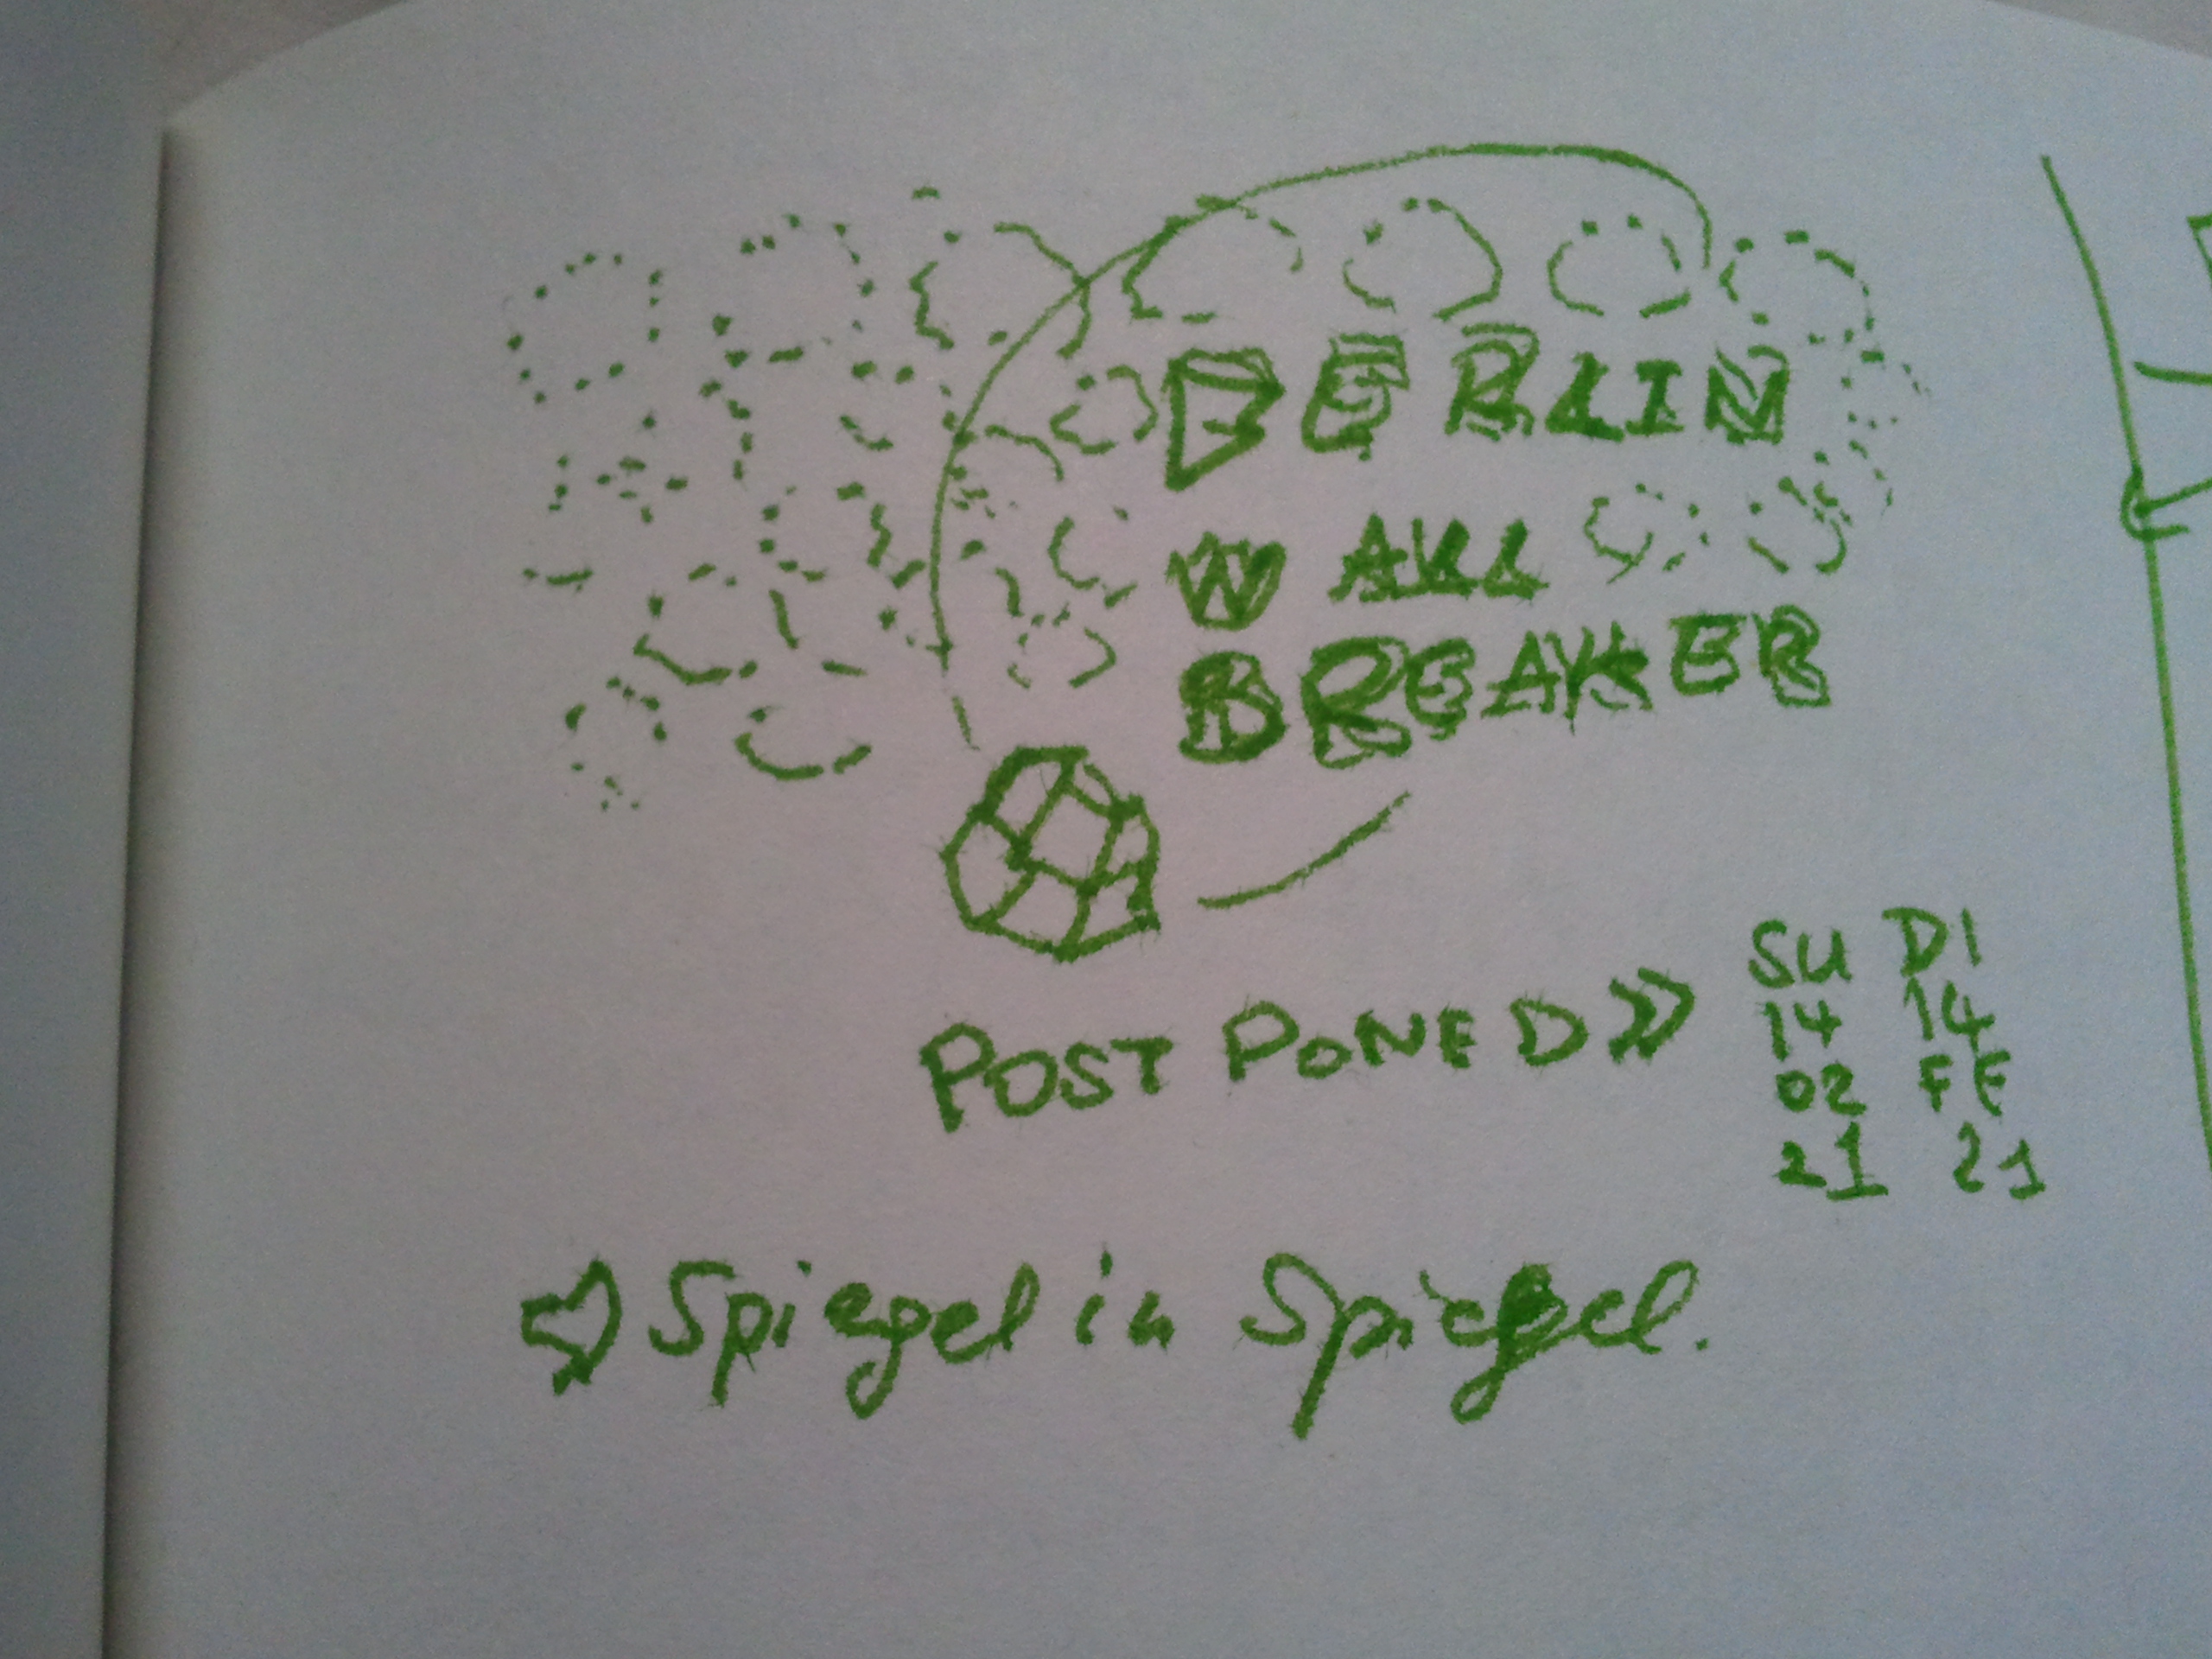 BERLIN
WALL
BREAKER
SU DI
POSTPONED >> 14 14
02 FE
21 21
Spiegel in Spiegel.